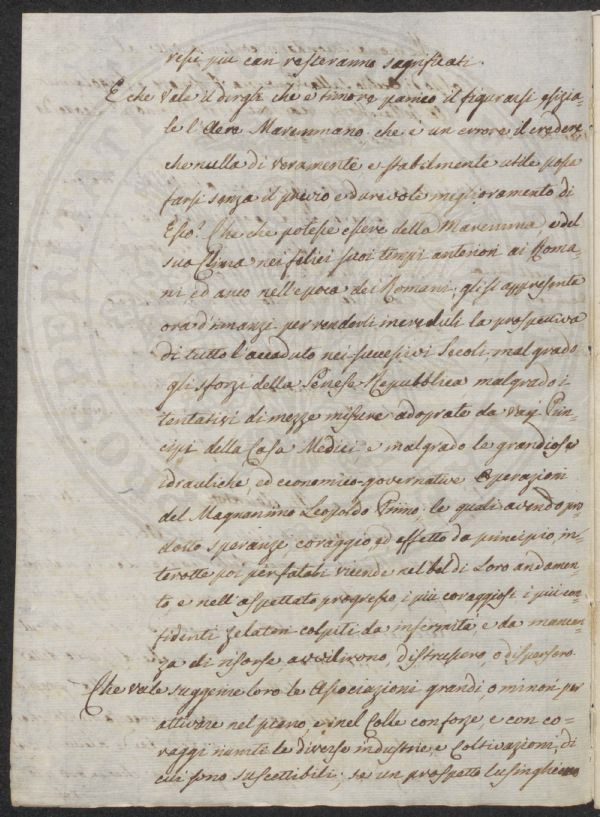 rese più cari resteranno sagrificati.
E che vale il dirgli che è timore panico il figurarsi esizia=
le l'Aere Maremmano che è un errore il credere
che nulla di veramente e stabilmente utile possa
farsi senza il previo e durevole miglioramento di
Esso? Che che potesse essere della Maremma, e del
suo Clima nei felici suoi tempi anteriori ai Roma=
ni ed anco nell'epoca dei Romani, gli si appresenta
ora d'innanzi per renderli increduli la prospettiva
di tutto l'accaduto nei successivi Secoli, malgrado
gli sforzi della Senese Repubblica malgrado i
tentativi di mezze misure adoprate da varj Prin=
cipi della Casa Medici e malgrado le grandiose
idrauliche, ed economico-governative Operazioni
del Magnanimo Leopoldo Primo, le quali avendo pro=
dotto speranze, coraggio, ed effetto da principio, in=
terotte poi per fatali vicende nel bel di Loro andamen=
to e nell'aspettato progresso, i più coraggiosi i più con=
fidenti zelatori colpiti da infermità e da mancan=
za di risorse avvilirono, distrussero, o dispersero.
Che vale suggerire loro le Associazioni grandi, o minori per
attivare nel piano, e nel Colle con forze, e con co=
raggi riuniti le diverse industrie, e Coltivazioni, di
cui sono suscettibili, se un prospetto lusinghiero